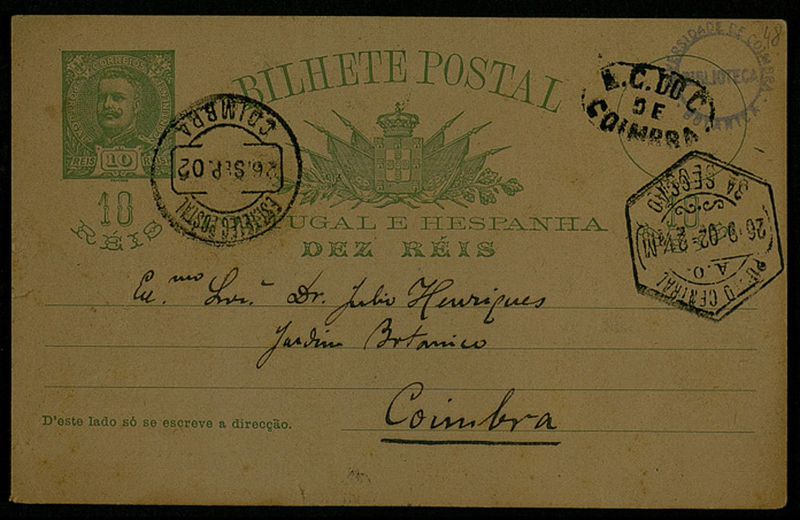 CORREIOS
REIS 10 REIS
10
RÉIS
BILHETE POSTAL
PORTUGAL E HESPANHA
DEZ RÉIS
COIMBRA
26.SEP.02
POSTAL
E.C. DO C.
DE
COIMBRA
UNIVERSIDADE DE COIMBRA
BIBLIOTECA
BOTANICA
48
3A SECÇÃO
26 9 02
CENTRAL
Ex.mo Snr. Dr. Julio Henriques
Jardim Botanico
Coimbra
D'este lado só se escreve a direcção.